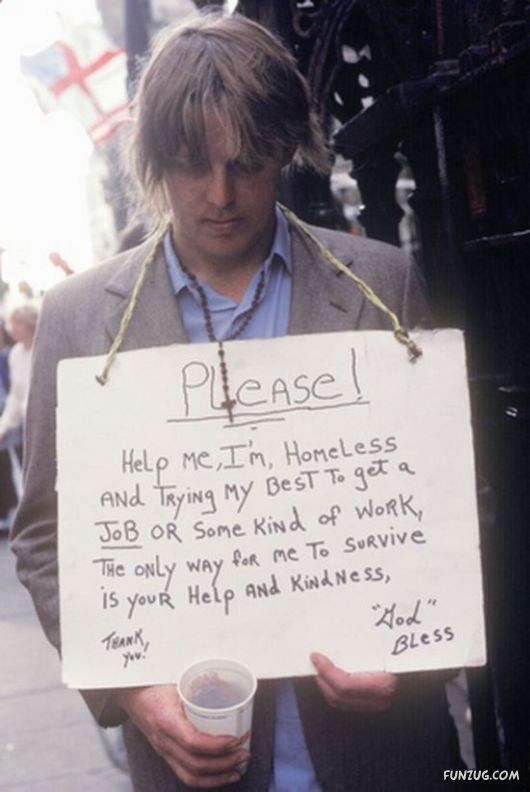 Please!
Help me, I'm, Homeless
AND Trying My BesT To get a
JoB OR Some Kind of WoRK,
The only way foR me To Survive
is youR Help AND KindNess,
Thank,
you!
"God"
Bless
FUNZUG.COM